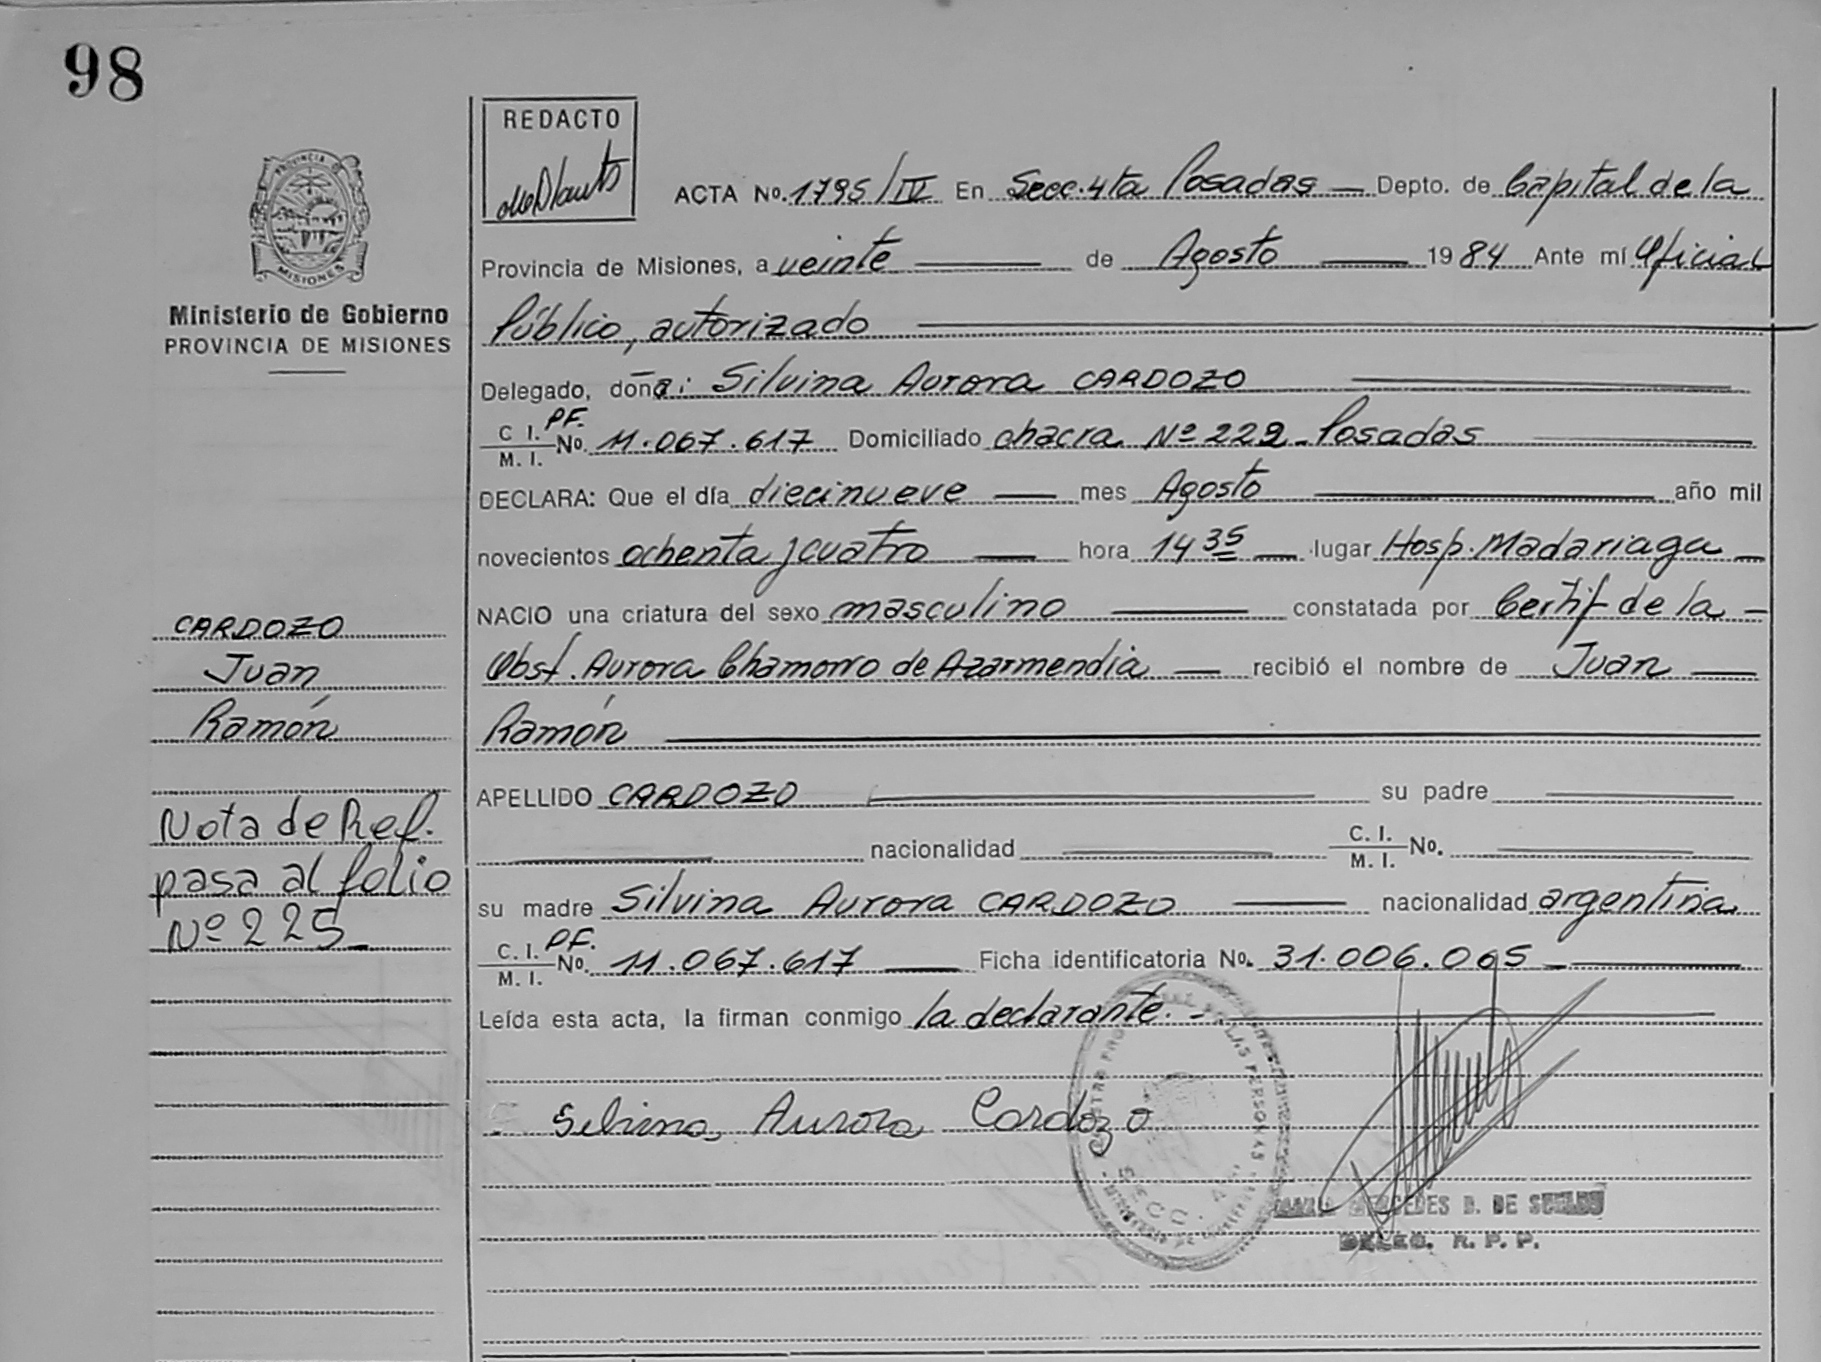 98
REDACTO
PROVINCIA DE
MISIONES
Ministerio de Gobierno
PROVINCIA DE MISIONES
ACTA No. 1795/IV En Secc. 4ta Posadas — Depto. de Capital de la
Provincia de Misiones, a veinte — de Agosto — 1984 Ante mí Oficial
Público, autorizado
Delegado, doña: Silvina Aurora CARDOZO
C I. M. I. PF. No. 11.067.617 Domiciliado chacra Nº 229 - Posadas
DECLARA: Que el día diecinueve — mes Agosto — año mil
novecientos ochenta y cuatro — hora 14 35 — lugar Hosp. Madariaga —
NACIO una criatura del sexo masculino — constatada por Certif de la —
Obst. Aurora Chamorro de Azarmendia — recibió el nombre de Juan —
Ramón
APELLIDO CARDOZO — su padre —
— nacionalidad — C. I. M. I. No. —
su madre Silvina Aurora CARDOZO — nacionalidad argentina
C. I. M. I. PF. No. 11.067.617 — Ficha identificatoria No. 31.006.065 —
Leída esta acta, la firman conmigo la declarante. -
CARDOZO
Juan
Ramón
Nota de Ref.
pasa al folio
Nº 225
Silvina Aurora Cardozo
DE LAS PERSONAS
SECC.
MERCEDES B. DE
DELEG. R. P. P.